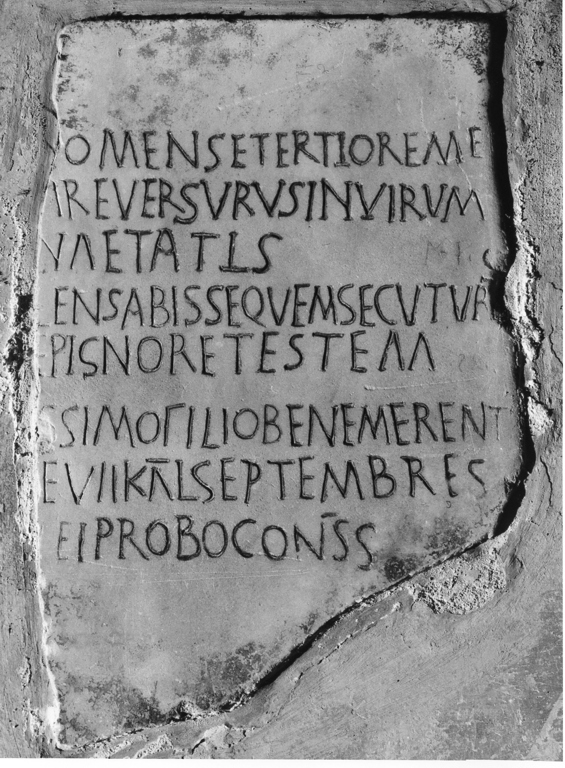 OMENSETERTIOREME
REVERSVRVSINVIRUM
AETATIS
ENSABISSEQVEMSECVTVR
PISNORETESTEM
SSIMOFILIOBENEMERENT
EVIIKALSEPTEMBRES
EIPROBOCONSS